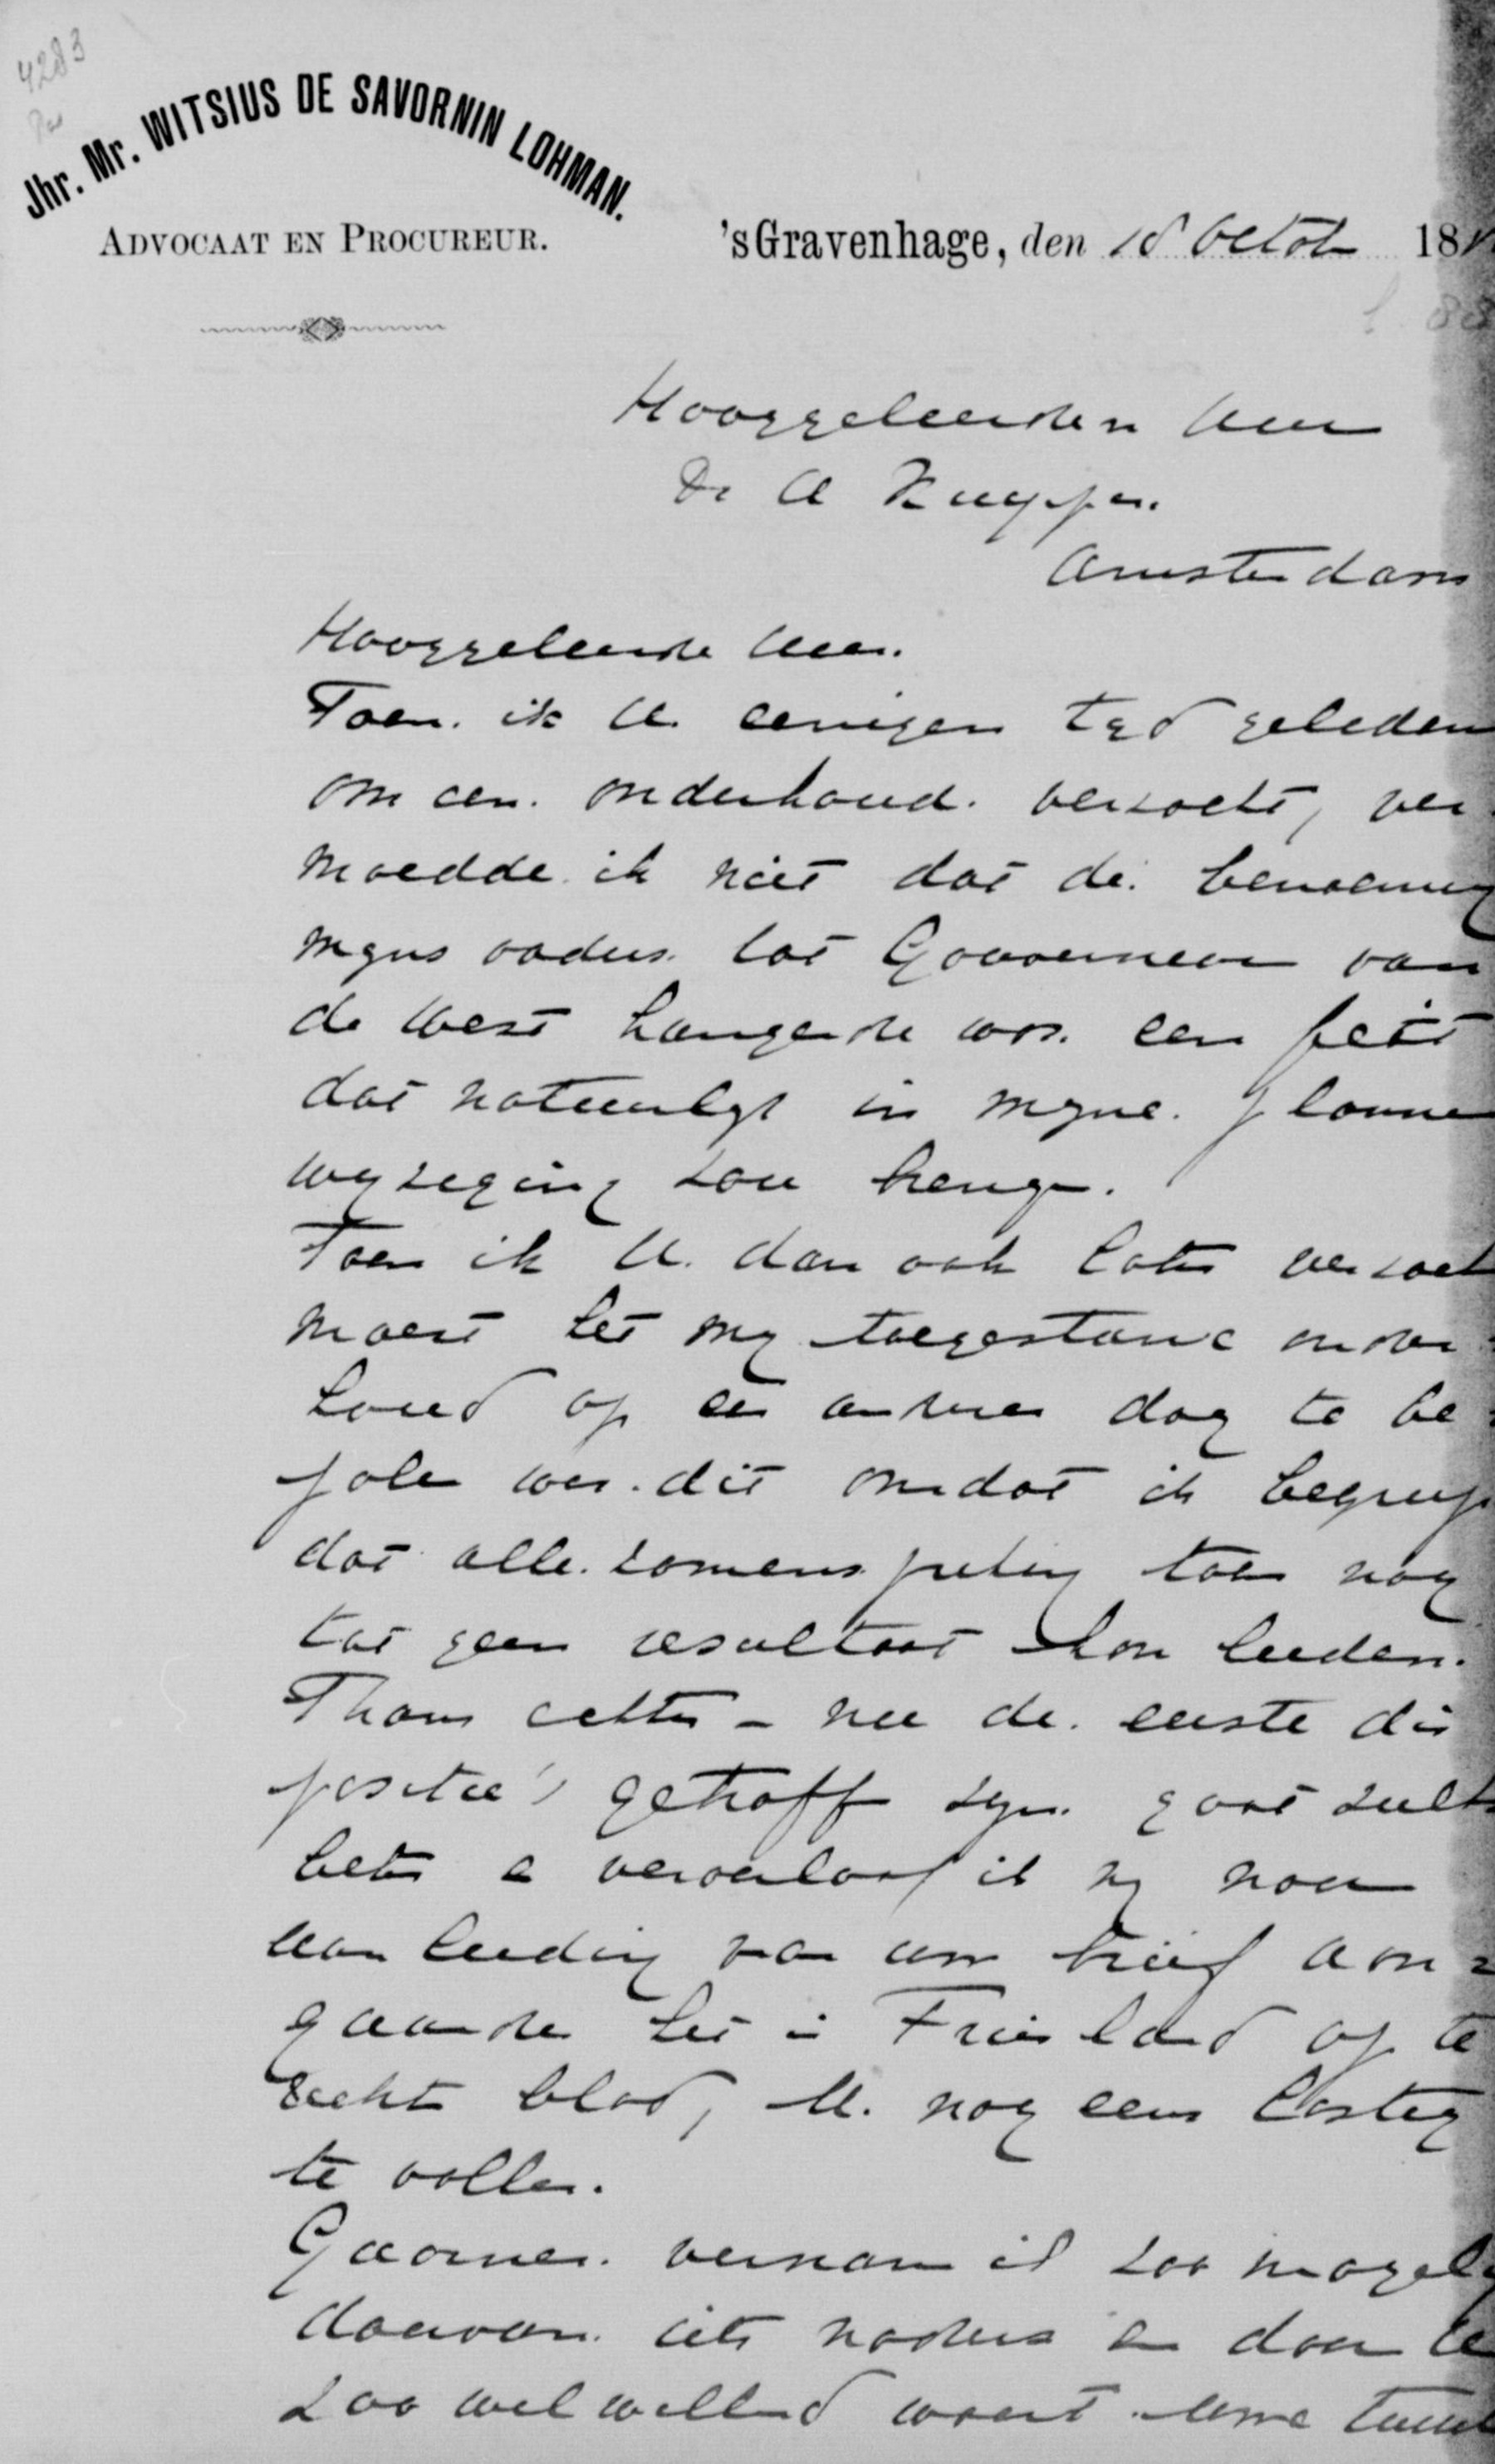 4283
Jhr. Mr. WITSIUS DE SAVORNIN LOHMAN.
ADVOCAAT EN PROCUREUR.
'sGravenhage, den 18 Octob 188
88
Hooggeleerden Heer
Dr A Kuyper.
Amsterdam
Hooggeleerde Heer.
Toen ik U eenigen tyd geleden
om een onderhoud verzocht, ver-
moedde ik niet dat de benoeming
myns vaders tot Gouverneur van
de West hangende was een feit
dat natuurlyk in myne plannen
wyzeging zou brengen.
Toen ik U dan ook later verzoek
moest het my toegestane onder=
houd op een anderen dag te be=
palen was dit omdat ik begreep
dat alle zamenspreking toen nog
tot geen resultaat kon leiden.
Thans echter - nu de eerste dis
positie's getroffen zyn gaat zulks
beter en veroorloof ik my naar
aanleiding van uw brief aan=
gaande het in Friesland op te
richten blad, U nog eens lastig
te vallen.
Gaarne vernam ik zoo mogelyk
daarvan iets naders en daar U
zoo welwillend waart uwe